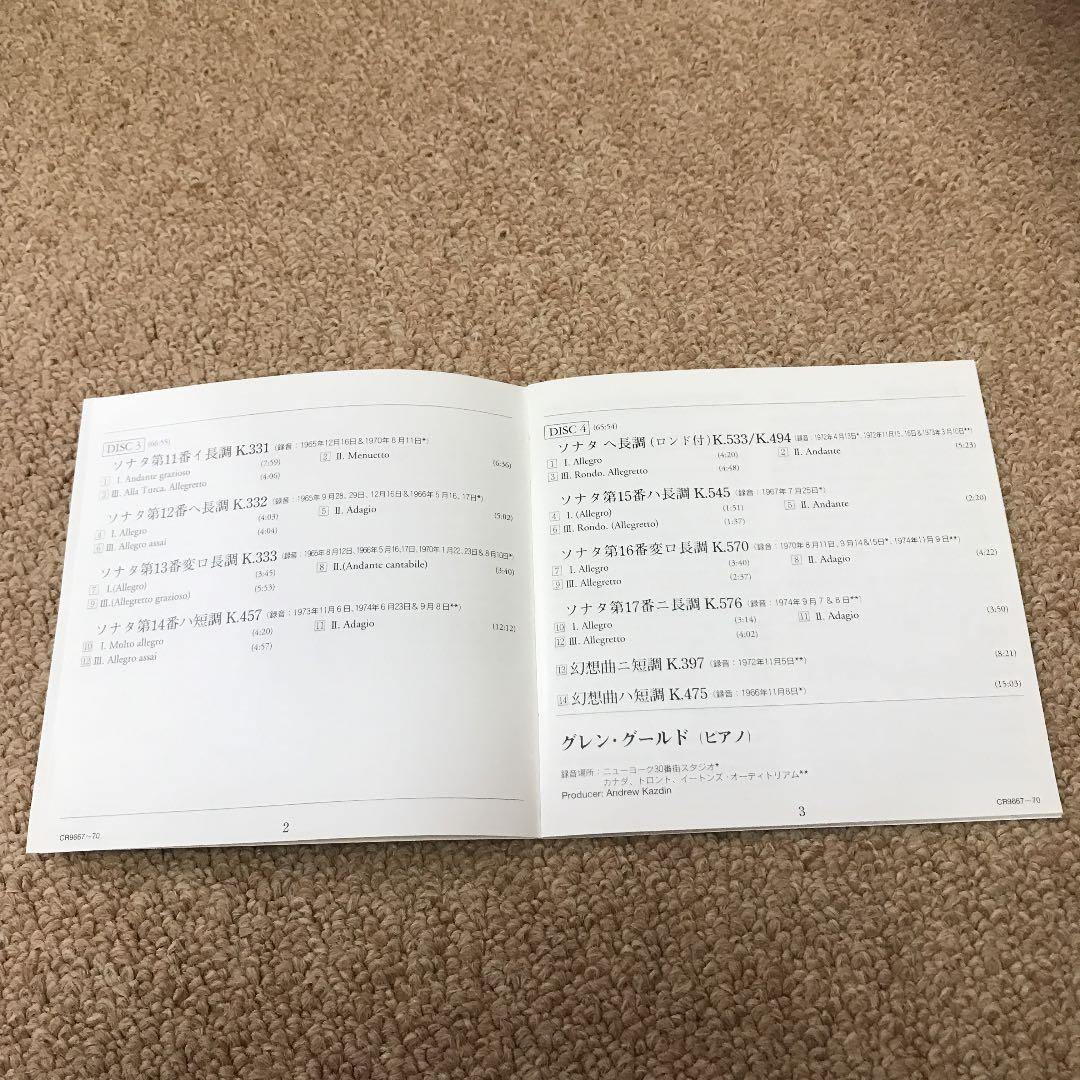 DISC 3 (66:55)
ソナタ第11番イ長調 K.331 (録音：1965年12月16日&1970年8月11日*)
1 I. Andante grazioso (7:59) 2 II. Menuetto (6:36)
3 III. Alla Turca. Allegretto (4:06)
ソナタ第12番ヘ長調 K.332 (録音：1965年9月28、29日、12月16日&1966年5月16、17日*)
4 I. Allegro (4:03) 5 II. Adagio (5:02)
6 III. Allegro assai (4:04)
ソナタ第13番変ロ長調 K.333 (録音：1965年8月12日、1966年5月16,17日、1970年1月22、23日&8月10日*)
7 I.(Allegro) (3:45) 8 II.(Andante cantabile) (3:40)
9 III.(Allegretto grazioso) (5:53)
ソナタ第14番ハ短調 K.457 (録音：1973年11月6日、1974年6月23日&9月8日**)
10 I. Molto allegro (4:20) 11 II. Adagio (12:12)
12 III. Allegro assai (4:57)
CR9667〜70
2
DISC 4 (65:54)
ソナタ ヘ長調(ロンド付)K.533/K.494 (録音：1972年4月13日*、1972年11月15、16日&1973年3月10日**)
1 I. Allegro (4:20) 2 II. Andante (5:23)
3 III. Rondo. Allegretto (4:48)
ソナタ第15番ハ長調 K.545 (録音：1967年7月25日*)
4 I. (Allegro) (1:51) 5 II. Andante (2:20)
6 III. Rondo. (Allegretto) (1:37)
ソナタ第16番変ロ長調 K.570 (録音：1970年8月11日、9月14&15日*、1974年11月9日**)
7 I. Allegro (3:40) 8 II. Adagio (4:22)
9 III. Allegretto (2:37)
ソナタ第17番ニ長調 K.576 (録音：1974年9月7&8日**)
10 I. Allegro (3:14) 11 II. Adagio (3:50)
12 III. Allegretto (4:02)
13 幻想曲ニ短調 K.397 (録音：1972年11月5日**) (8:21)
14 幻想曲ハ短調 K.475 (録音：1966年11月8日*) (15:03)
グレン・グールド (ピアノ)
録音場所：ニューヨーク30番街スタジオ*
カナダ、トロント、イートンズ・オーディトリアム**
Producer: Andrew Kazdin
CR9667〜70
3